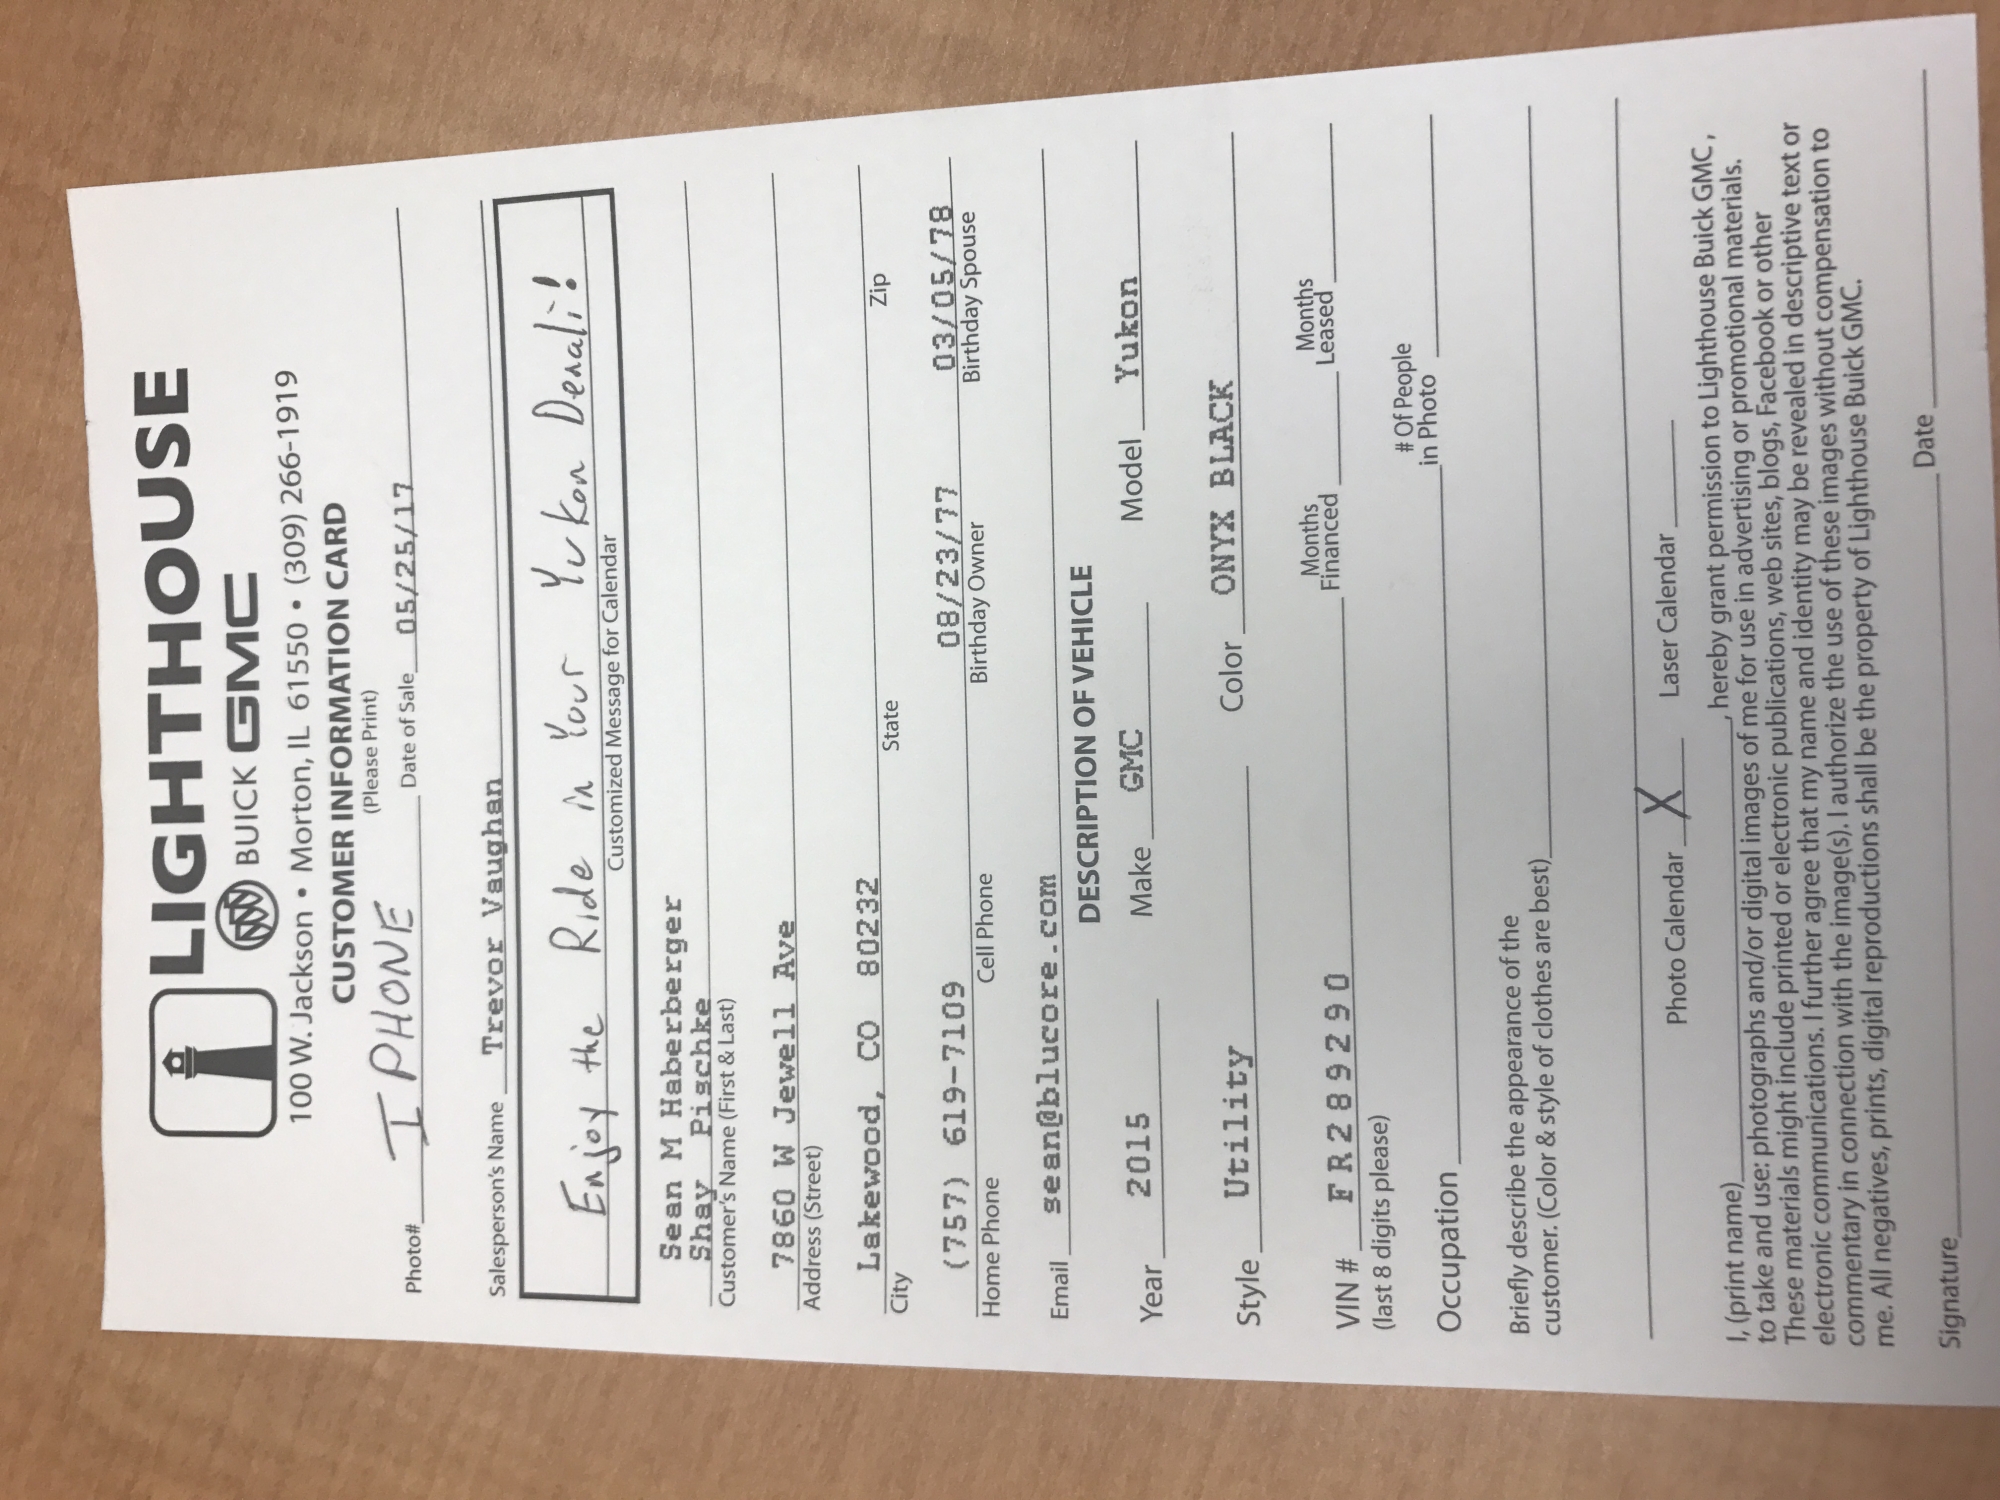 LIGHTHOUSE
BUICK GMC
100 W. Jackson • Morton, IL 61550 • (309) 266-1919
CUSTOMER INFORMATION CARD
(Please Print)
Photo# I PHONE Date of Sale 05/25/17
Salesperson's Name Trevor Vaughan
Enjoy the Ride in Your Yukon Denali!
Customized Message for Calendar
Sean M Haberberger
Shay Pischke
Customer's Name (First & Last)
7860 W Jewell Ave
Address (Street)
Lakewood, CO 80232
City State Zip
(757) 619-7109 08/23/77 03/05/78
Home Phone Cell Phone Birthday Owner Birthday Spouse
Email sean@blucore.com
DESCRIPTION OF VEHICLE
Year 2015 Make GMC Model Yukon
Style Utility Color ONYX BLACK
VIN # FR289290 Months Financed Months Leased
(last 8 digits please)
Occupation # Of People in Photo
Briefly describe the appearance of the
customer. (Color & style of clothes are best)
Photo Calendar X Laser Calendar
I, (print name) , hereby grant permission to Lighthouse Buick GMC ,
to take and use: photographs and/or digital images of me for use in advertising or promotional materials.
These materials might include printed or electronic publications, web sites, blogs, Facebook or other
electronic communications. I further agree that my name and identity may be revealed in descriptive text or
commentary in connection with the image(s). I authorize the use of these images without compensation to
me. All negatives, prints, digital reproductions shall be the property of Lighthouse Buick GMC.
Signature Date